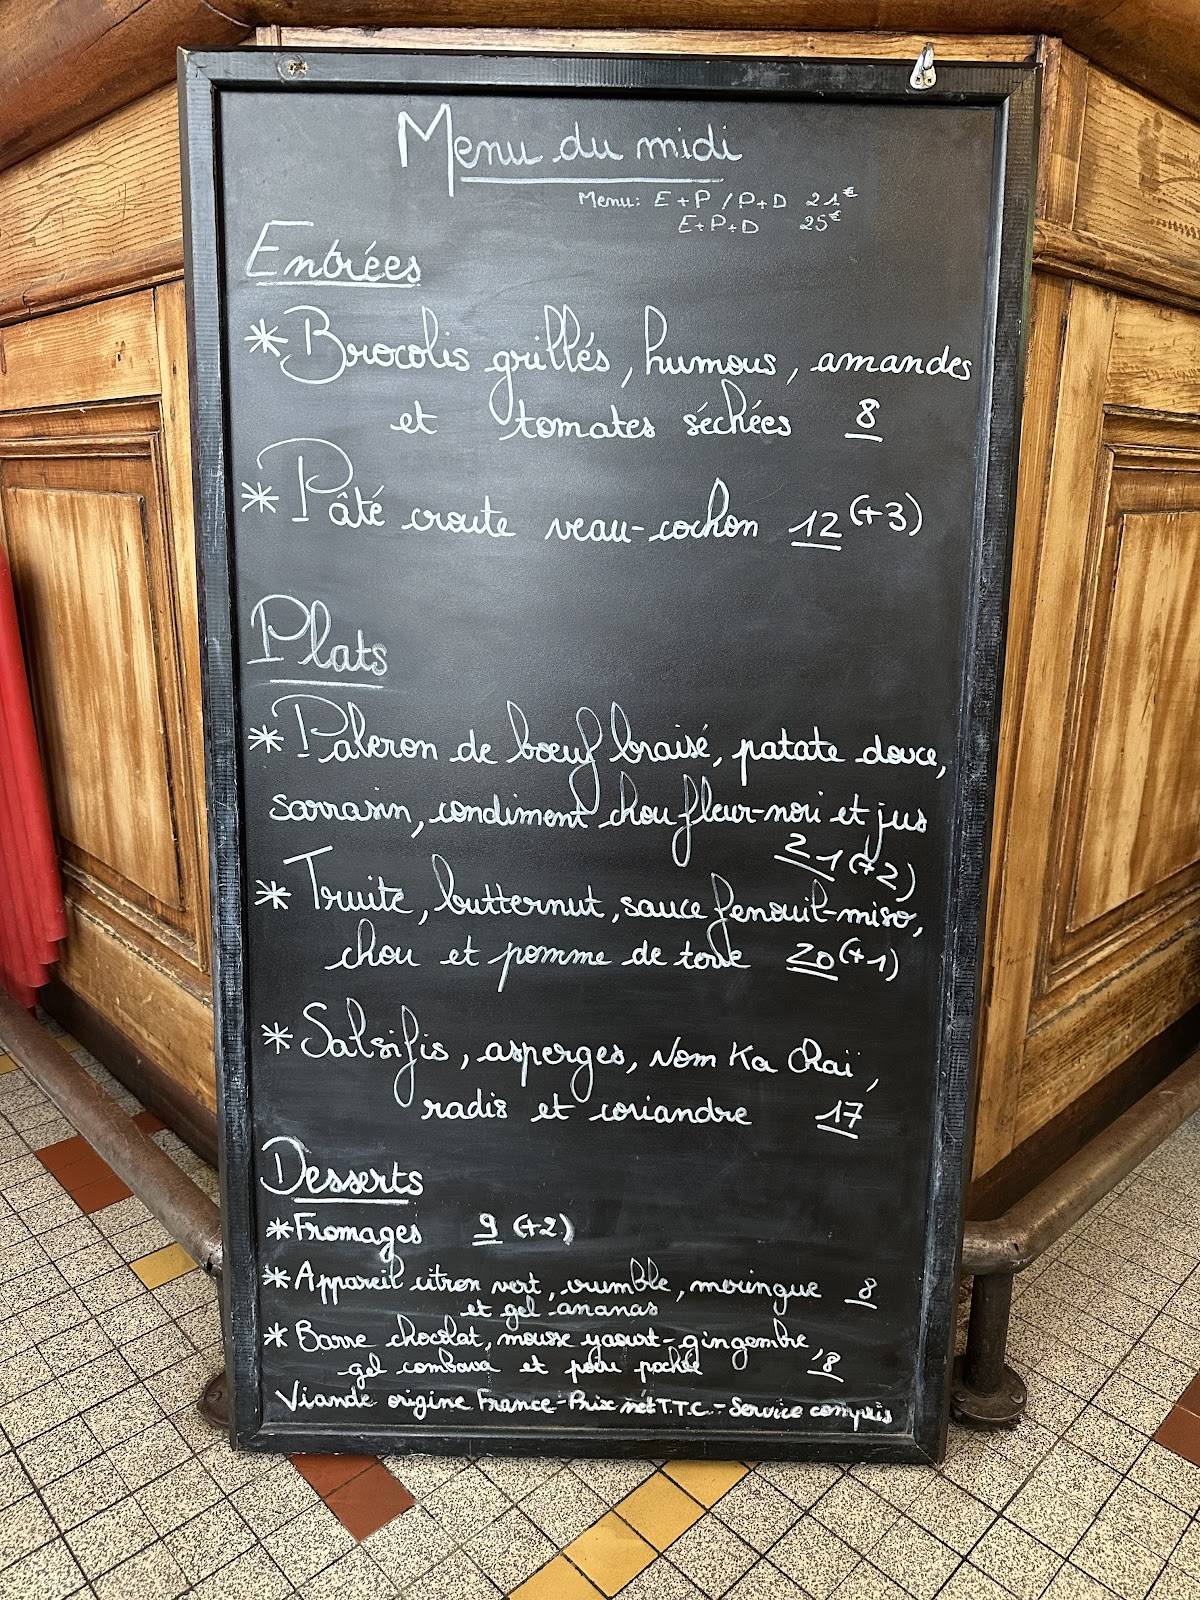 Menu du midi
Menu: E+P / P+D 21€
E+P+D 25€
Entrées
* Brocolis grillés, humous, amandes
et tomates séchées 8
* Pâté croute veau-cochon 12 (+3)
Plats
* Paleron de bœuf braisé, patate douce,
sarrasin, condiment chou fleur-nori et jus
21 (+2)
* Truite, butternut, sauce fenouil-miso,
chou et pomme de terre 20 (+1)
* Salsifis, asperges, Nom Ka Chaï,
radis et coriandre 17
Desserts
* Fromages 9 (+2)
* Appareil citron vert, crumble, meringue 8
et gel ananas
* Barre chocolat, mousse yaourt-gingembre,
gel combava et poire pochée 8
Viande origine France - Prix net T.T.C. - Service compris